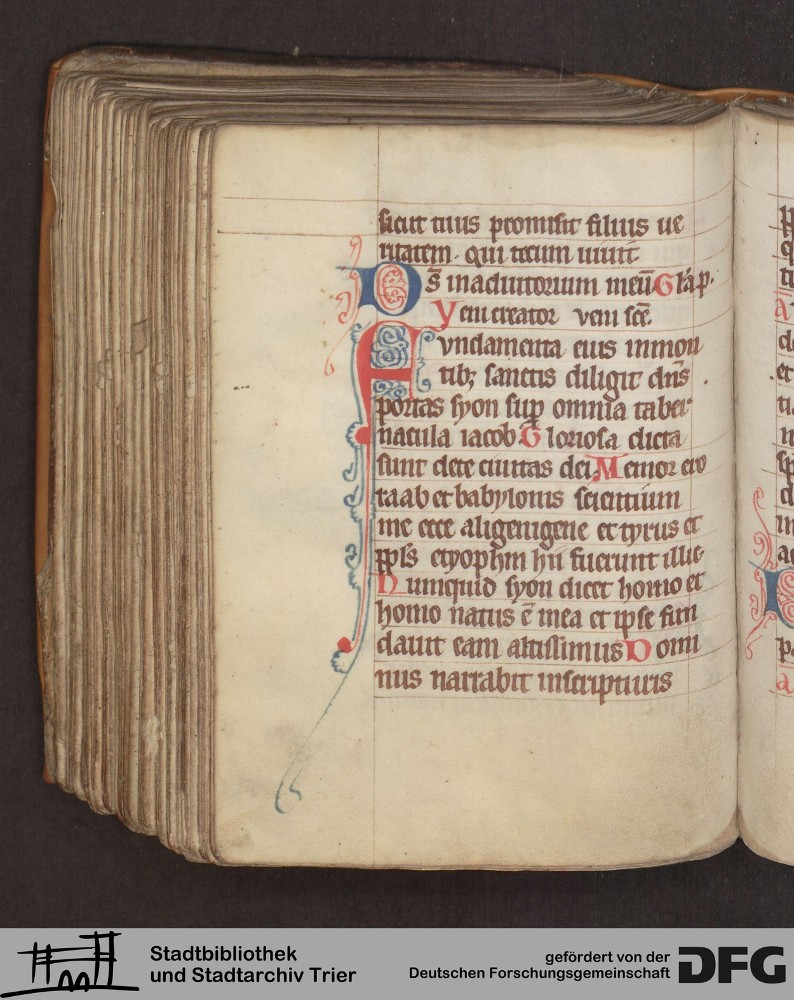 sicut tuus promisit filius ue
ritatem. qui tecum uiuit
Ds̄ inadiutorium meū Glā p.
Veni creator veni sc̄e.
Fvndamenta eius inmon
tibꝫ sanctis diligit dn̄s
portas syon sup omnia taber
nacula iacob Gloriosa dicta
sunt dete ciuitas dei Memor ero
raab et babylonis scientium
me ecce aligenigene et tyrus et
ppls etyophm hii fuerunt illic
Numquid syon dicet homo et
homo natus ē inea et ipse fun
dauit eam altissimus Domi
nus narrabit inscripturis
Stadtbibliothek
und Stadtarchiv Trier
gefördert von der
Deutschen Forschungsgemeinschaft
DFG